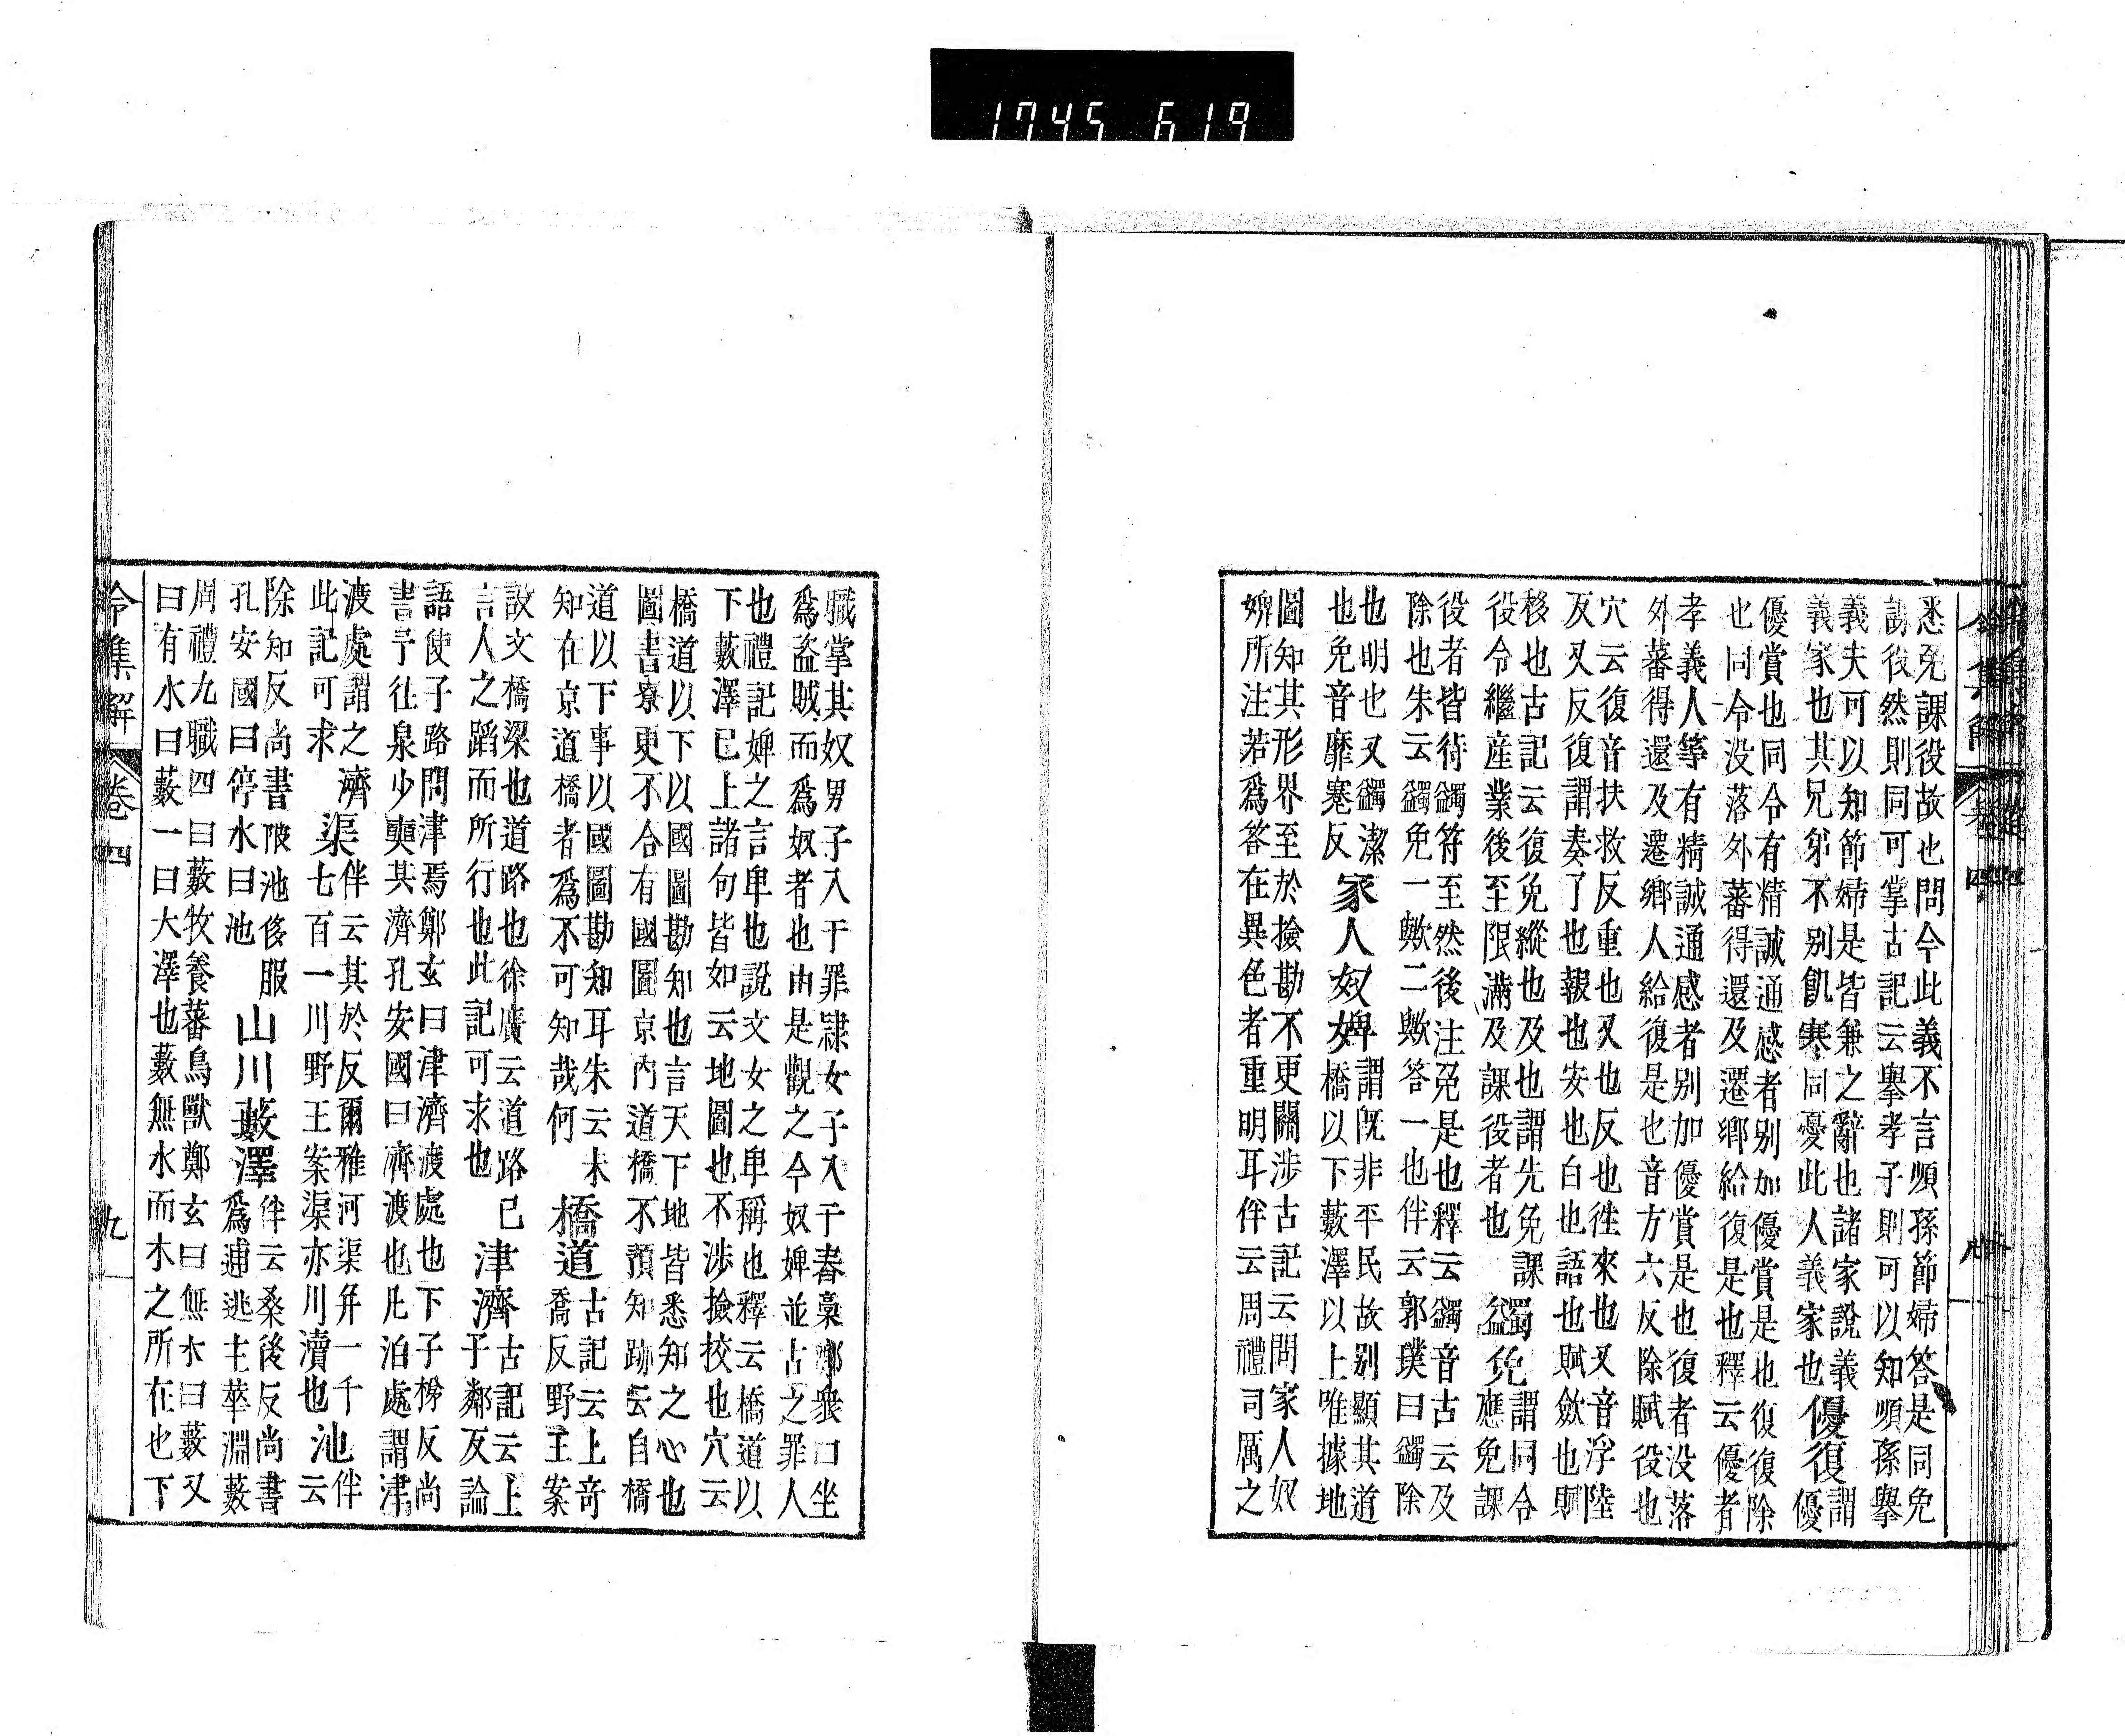 1745 619
悉免課役故也問今此義不言順孫節婦答是同免
謂役然則同可掌古記云擧孝子則可以知順孫擧
義夫可以知節婦是皆兼之辭也諸家說義
義家也其兄弟不別飢寒同憂此人義家也
優復
謂
優
優賞也同令有精誠通感者別加優賞是也復復除
也同令没落外蕃得還及遷鄕給復是也釋云優者
孝義人等有精誠通感者別加優賞是也復者没落
外蕃得還及遷鄕人給復是也音方六反除賦役也
穴云復音扶救反重也又也反也徃來也又音浮陸
反又反復謂奏了也報也安也白也語也賦斂也賦
移也古記云復免縱也及也謂先免課
役令繼産業後至限滿及課役者也
蠲免
謂同令
應免課
役者皆待蠲符至然後注免是也釋云蠲音古云及
除也朱云蠲免一歟二歟答一也伴云郭璞曰蠲除
也明也又蠲潔
也免音靡蹇反
家人奴婢
謂既非平民故別顯其道
橋以下藪澤以上唯據地
圖知其形界至於撿勘不更關涉古記云問家人奴
婢所注若爲答在異色者重明耳伴云周禮司厲之
令集解
卷四
職掌其奴男子入于罪隷女子入于舂稾鄭衆曰坐
爲盗賊而爲奴者也由是觀之今奴婢並古之罪人
也禮記婢之言卑也說文女之卑稱也釋云橋道以
下藪澤已上諸句皆如云地圖也不涉撿挍也穴云
橋道以下以國圖勘知也言天下地皆悉知之心也
圖書寮更不合有國圖京内道橋不預知跡云自橋
道以下事以國圖勘知耳朱云未
知在京道橋者爲不可知哉何
橋道
古記云上奇
喬反野王案
說文橋梁也道路也徐廣云道路已
言人之蹈而所行也此記可求也
津濟
古記云上
于鄰反論
語使子路問津焉鄭玄曰津濟渡處也下子㯉反尚
書予往泉少奭其濟孔安國曰濟渡也凡泊處謂津
渡處謂之濟
此記可求
渠
伴云其於反爾雅河渠并一千
七百一川野王案渠亦川瀆也
池
伴
云
除知反尚書陂池侈服
孔安國曰停水曰池
山川藪澤
伴云桑後反尚書
爲逋逃主萃淵藪
周禮九職四曰藪牧養蕃鳥獸鄭玄曰無水曰藪又
曰有水曰藪一曰大澤也藪無水而木之所在也下
令集解
卷四
九